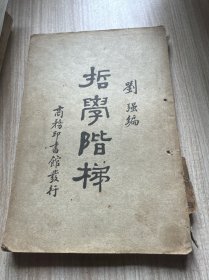 劉强編
哲學階梯
商務印書館發行